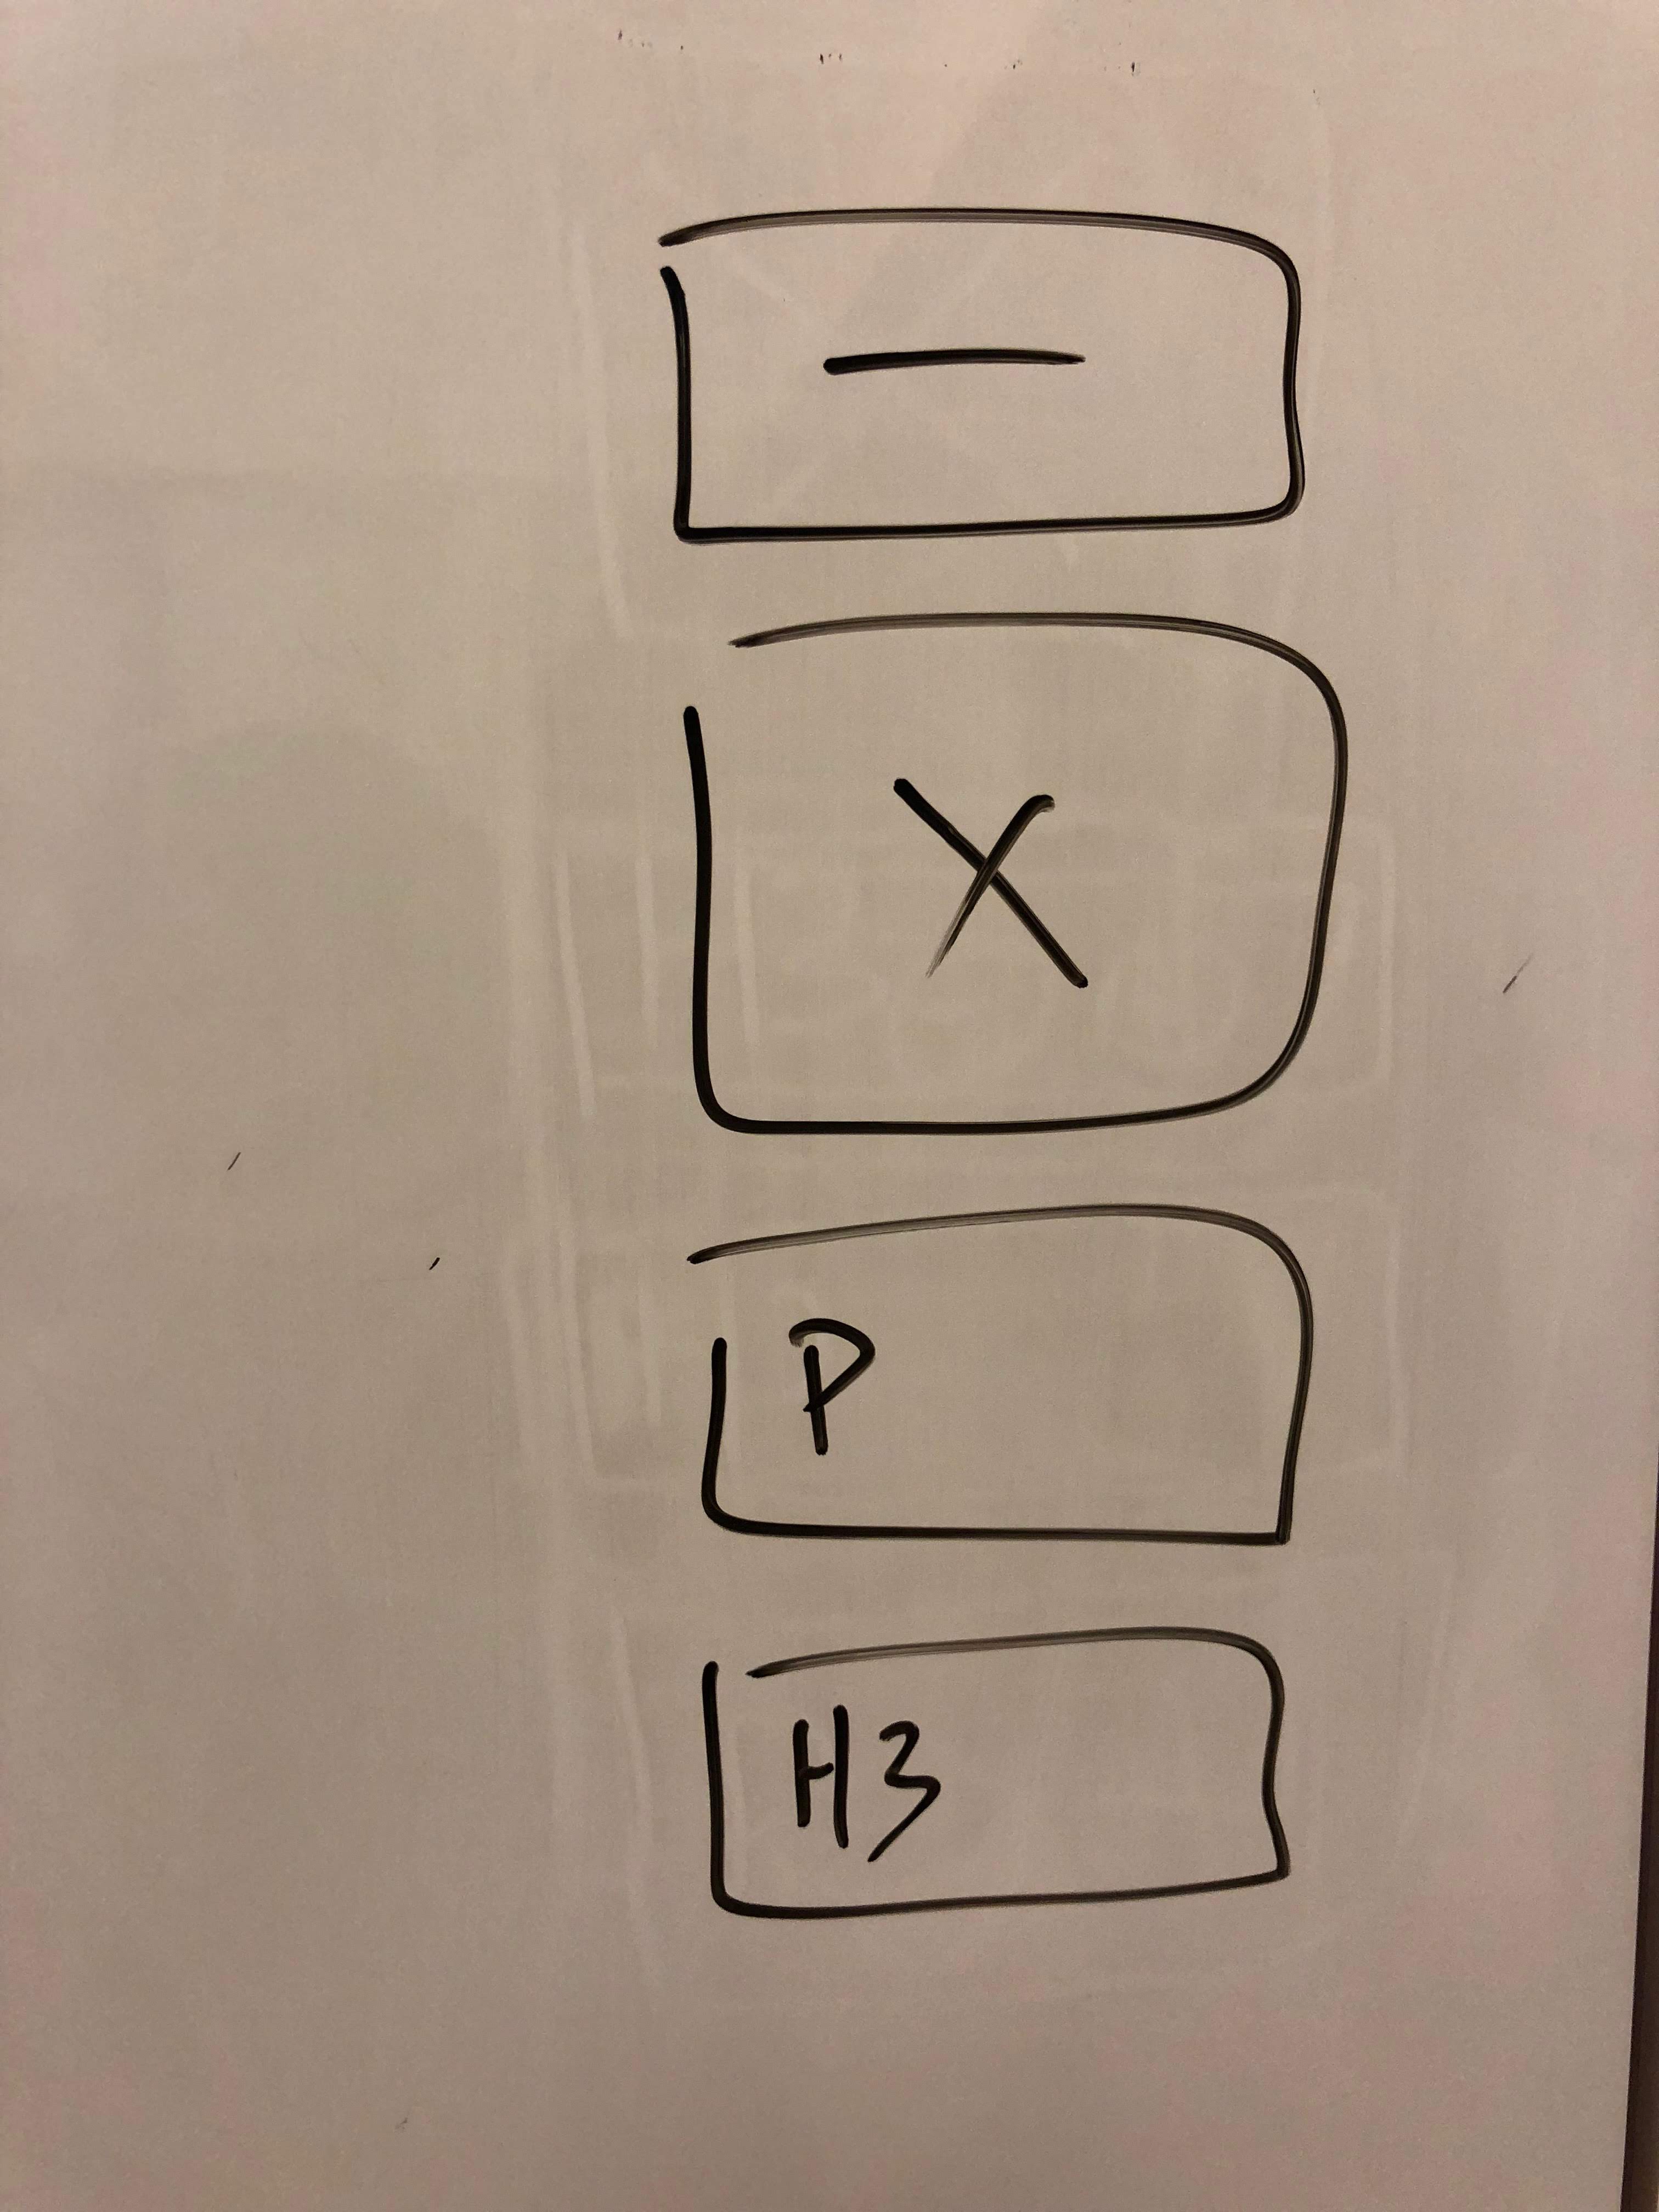 —
X
P
H3